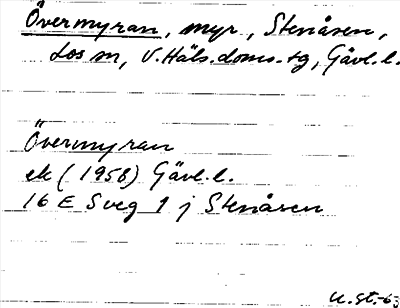 Övermyran, myr, Stenåsen,
Los sn, V. Häls. doms.-tg, Gävl. l.
Övermyran
ek (1958) Gävl. l.
16 E Sveg 1 j Stenåsen
u. st. -63